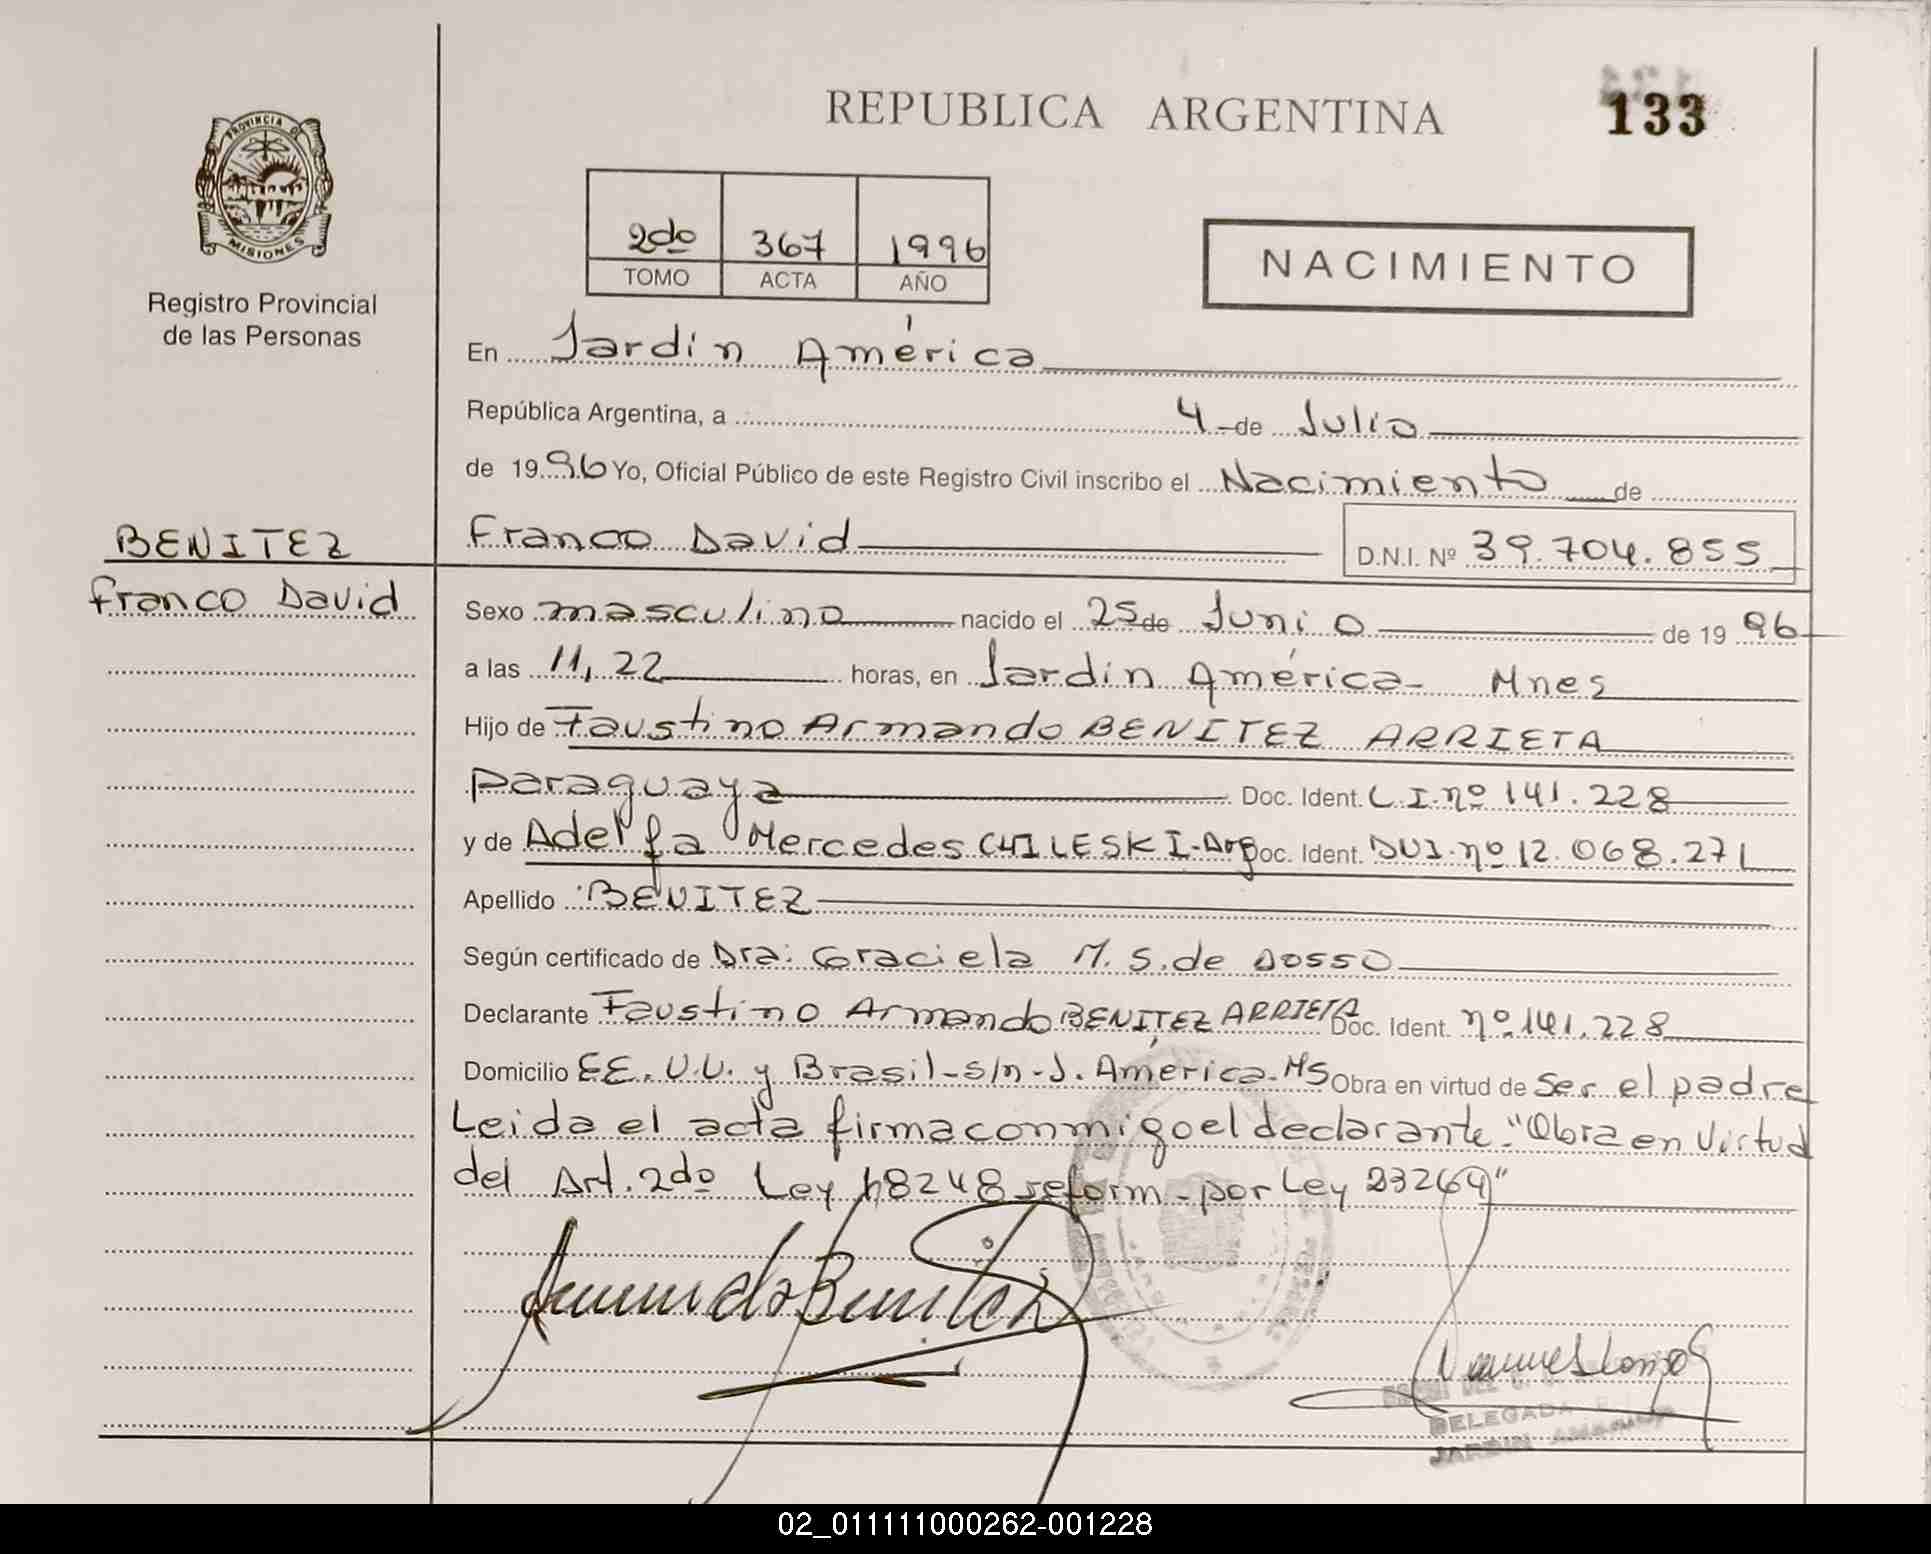 REPUBLICA ARGENTINA
133
PROVINCIA DE
MISIONES
Registro Provincial
de las Personas
2do 367 1996
TOMO ACTA AÑO
NACIMIENTO
En Jardín América
República Argentina, a 4 de Julio
de 1996 Yo, Oficial Público de este Registro Civil inscribo el Nacimiento de
Franco David D.N.I. Nº 39.704.855
BENITEZ
Franco David
Sexo masculino nacido el 25 de Junio de 1996
a las 11,22 horas, en Jardín América- Mnes
Hijo de Faustino Armando BENITEZ ARRIETA
paraguaya Doc. Ident. C.I. nº 141.228
y de Adelfa Mercedes CHILESKI-Arg Doc. Ident. DUI. nº 12.068.271
Apellido BENITEZ
Según certificado de Dra: Graciela M. S. de Dosso
Declarante Faustino Armando BENITEZ ARRIETA Doc. Ident. nº 141.228
Domicilio EE. U.U. y Brasil-s/n-J. América-MS Obra en virtud de ser el padre
Leida el acta firma conmigo el declarante-"Obra en Virtud
del Art. 2do Ley 18248 reform-por Ley 23264"
Armando Benitez
DELEGADA
JARDIN AMERICA
02_011111000262-001228